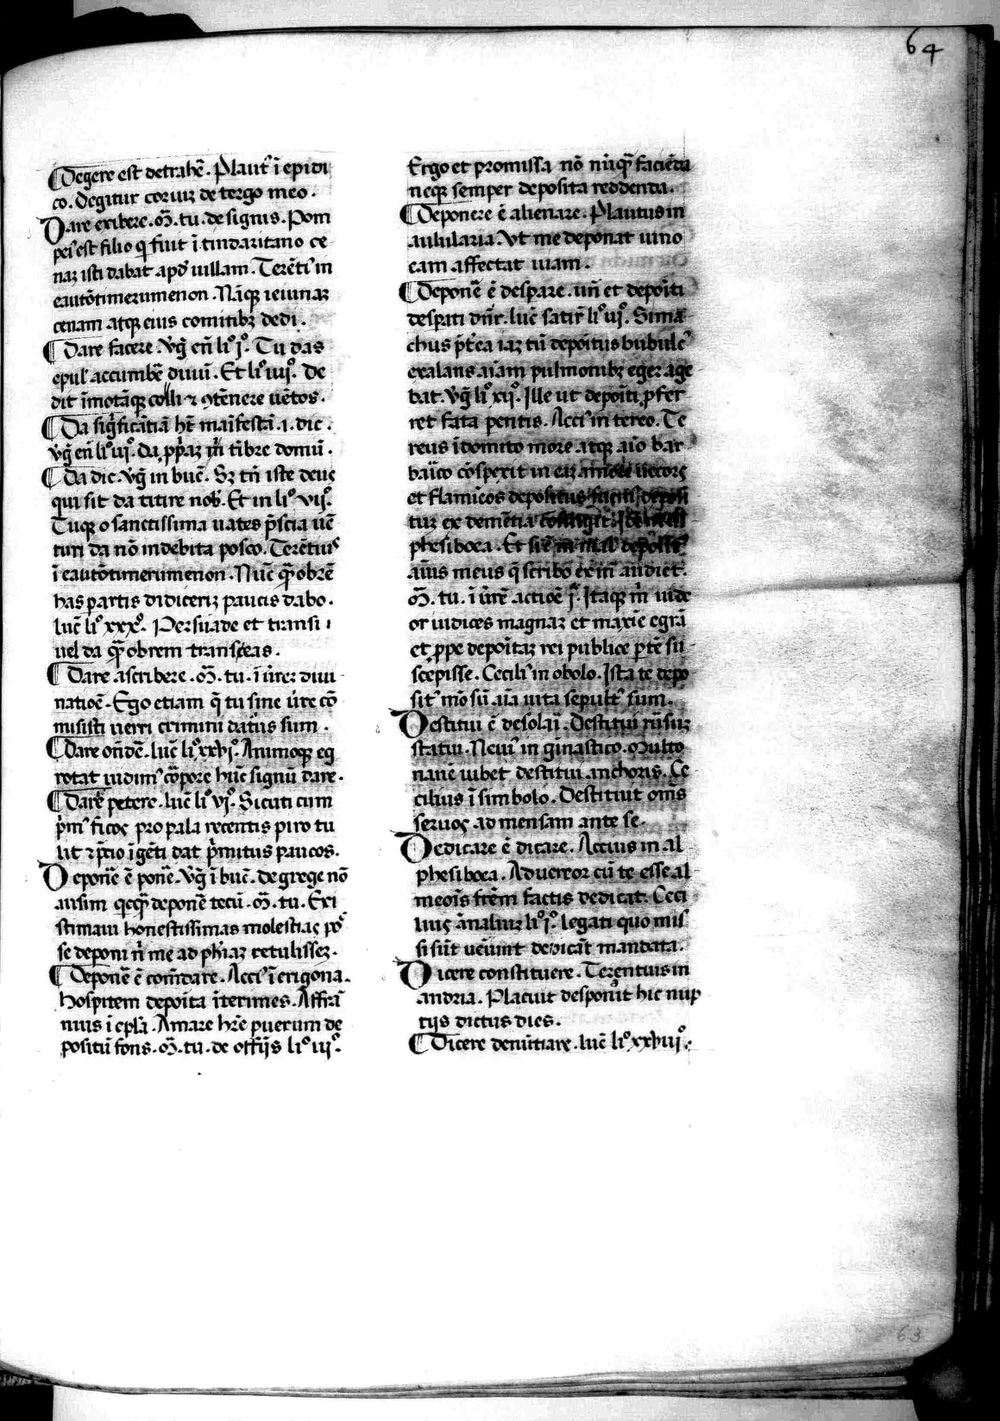 64
¶Degere est detrahẽ. Plaut᷒ ĩ epidi
co. Degitur corium de tergo meo.
Dare exibere. M̃. tu. de signis. Pom
pei᷒ est filio q̃ fuit ĩ tindaritano ce
naꝫ isti dabat apd̃ uillam. Terẽti᷒ in
eautõtimerumenon. Nãqꝫ ieiunaꝫ
cenam atqꝫ eius comitibꝫ dedi.
¶Dare facere. V̾g̃ eñ liº iº. Tu das
epul᷒ accumbẽ diuũ. Et liº iiiiº. De
dit ĩmotãqꝫ colli ⁊ ꝯtẽnere uẽtos.
¶Da sigĩficãtiã hꝫt maĩfestã .i. dic.
V̾g̃ eñ liº uiº. Da ꝓpaꝫ m̃ tibre domũ.
¶Da dic. V̾g̃ in buc̃. Sꝫ tñ iste deus
qui sit da titire nob᷒. Et in liº viiº.
Tuqꝫ o sanctissima uates p̃scia uẽ
turi da nõ indebita posco. Terẽtius
ĩ eautõtimerumenon. Nũc q̃ obrẽ
has partis didicerim paucis dabo.
luc̃ liº xxxº. Persuade et transi ı
uel da q̃ obrem transeas.
¶Dare ascribere. M̃. tu. ĩ uẽreꝫ diui
natioẽ. Ego etiam q̃ tu sine uẽre cõ
misisti uerri crimini daturus sum.
¶Dare oñdẽ. luc̃ liº xxviº. Animoqꝫ eg
rotat uidim᷒ cõrpore hũc signũ dare.
¶Dare petere. luc̃ liº viº. Sicuti cum
p̃m᷒ ficos pro pala recentis piro tu
lit ⁊ p̃cio ĩgẽti dat p̃mitus paucos.
Deponẽ ẽ ponẽ. V̾g̃ ĩ buc̃. de grege nõ
ausim qcq̃ deponẽ tecũ. M̃. tu. Exi
stimaui honestissimas molestias pos
se deponi ñ me ad phiaꝫ retulisseꝫ.
¶Deponẽ ẽ com̃dare. Acci᷒ ĩ erigona.
hospitem depoita ĩterimes. Affrã
nius ĩ epl̃a. Amare hr̃e puerum de
positũ fons. M̃. tu. de offijs liº iiiº.
Ergo et promissa nõ nũq̃ faciẽda
neqꝫ semper deposita reddenda.
¶Deponere ẽ alienare. Plautus in
aulularia. Vt me deponat uino
eam affectat uiam.
¶Deponẽ ẽ despare. uñ et depoĩti
despati dñr. luc̃ satir᷒ liº uiº. Sima
chus p̃tea iaꝫ tũ depoĩtus bubulc᷒
exalans aĩam pulmonibꝫ eger age
bat. V̾g̃ liº xiiº. Ille ut depoĩti ꝓfer
ret fata pentis. Acci᷒ in tereo. Te
reus ĩdomito more atqꝫ aĩo bar
baũco cõspexit in eaꝫ
et flamicos depositus
tuꝫ ex demẽtia
phesiboea. Et
auus meus q̃ scribo audiet.
M̃. tu. ĩ uẽre actioẽ iº. Itaqꝫ m̃ uide
or iudices magnaꝫ et maxĩe egrã
et ꝓpe depoĩtaꝫ rei publice ptẽ su
scepisse. Cecili᷒ in obolo. Ista te depo
sit᷒ mõ sũ aĩa uita sepult᷒ sum.
Destitui ẽ desolari. Destitui rursuꝫ
statui. Neui᷒ in ginastico. Multo
nauẽ iubet destitui anchoris. Ce
cilius ĩ simbolo. Destituit om̃s
seruos ad mensam ante se.
Dedicare ẽ dicare. Accius in al
phesiboea. Aduereor cũ te esse al
meõis frẽm factis dedicat. Ceci
lius ãnaliuꝫ liº iº. legati quo mis
si sũt ueniũt dedicãt mandata.
Dicere constituere. Terentius in
andria. Placuit despondit hic nup
tijs dictus dies.
¶Dicere denũtiare. luc̃ liº xxviiº.
63